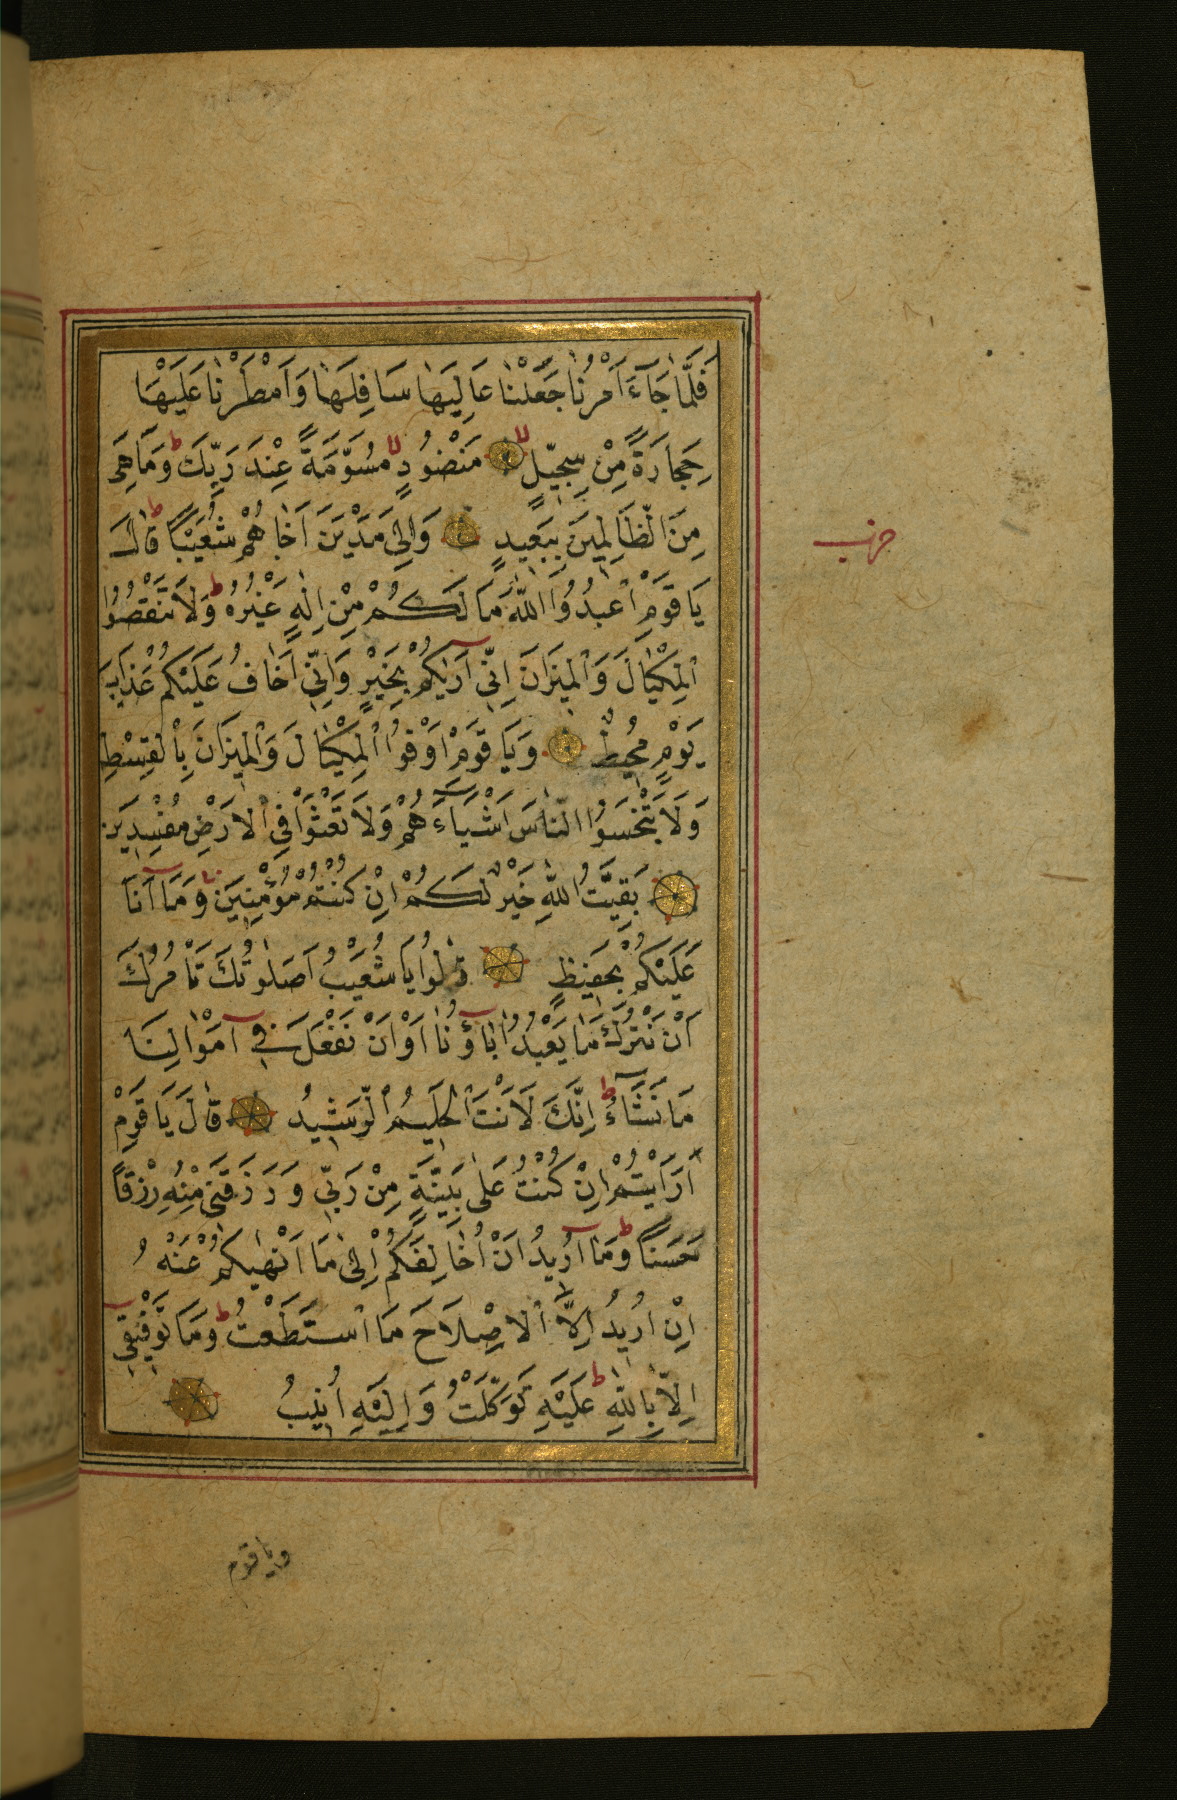 فَلَمَّا جَآءَ اَمْرُنَا جَعَلْنَا عَالِيَهَا سَافِلَهَا وَاَمْطَرْنَا عَلَيْهَا
حِجَارَةً مِنْ سِجّيلٍ مَنْضُودٍ مُسَوَّمَةً عِنْدَ رَبِّكَ وَمَا هِىَ
مِنَ الظَّالِمِينَ بِبَعِيدٍ وَاِلٰى مَدْيَنَ اَخَاهُمْ شُعَيْبًا قَالَ
يَا قَوْمِ اعْبُدُوا اللّٰهَ مَا لَكُمْ مِنْ اِلٰهٍ غَيْرُهُ وَلَا تَنْقُصُوا
الْمِكْيَالَ وَالْمِيزَانَ اِنِّى اَرٰيكُمْ بِخَيْرٍ وَاِنِّى اَخَافُ عَلَيْكُمْ عَذَابَ
يَوْمٍ مُحِيطٍ وَيَا قَوْمِ اَوْفُوا الْمِكْيَالَ وَالْمِيزَانَ بِالْقِسْطِ
وَلَا تَبْخَسُوا النَّاسَ اَشْيَاءَهُمْ وَلَا تَعْثَوْا فِى الْاَرْضِ مُفْسِدِينَ
بَقِيَّتُ اللّٰهِ خَيْرٌ لَكُمْ اِنْ كُنْتُمْ مُؤْمِنِينَ وَمَا اَنَا
عَلَيْكُمْ بِحَفِيظٍ قَالُوا يَا شُعَيْبُ اَصَلٰوتُكَ تَأْمُرُكَ
اَنْ نَتْرُكَ مَا يَعْبُدُ اٰبَاؤُنَا اَوْ اَنْ نَفْعَلَ فِى اَمْوَالِنَا
مَا نَشَاءُ اِنَّكَ لَاَنْتَ الْحَلِيمُ الرَّشِيدُ قَالَ يَا قَوْمِ
اَرَاَيْتُمْ اِنْ كُنْتُ عَلٰى بَيِّنَةٍ مِنْ رَبِّى وَرَزَقَنِى مِنْهُ رِزْقًا
حَسَنًا وَمَا اُرِيدُ اَنْ اُخَالِفَكُمْ اِلٰى مَا اَنْهٰيكُمْ عَنْهُ
اِنْ اُرِيدُ اِلَّا الْاِصْلَاحَ مَا اسْتَطَعْتُ وَمَا تَوْفِيقِى
اِلَّا بِاللّٰهِ عَلَيْهِ تَوَكَّلْتُ وَاِلَيْهِ اُنِيبُ
حزب
ويا قوم